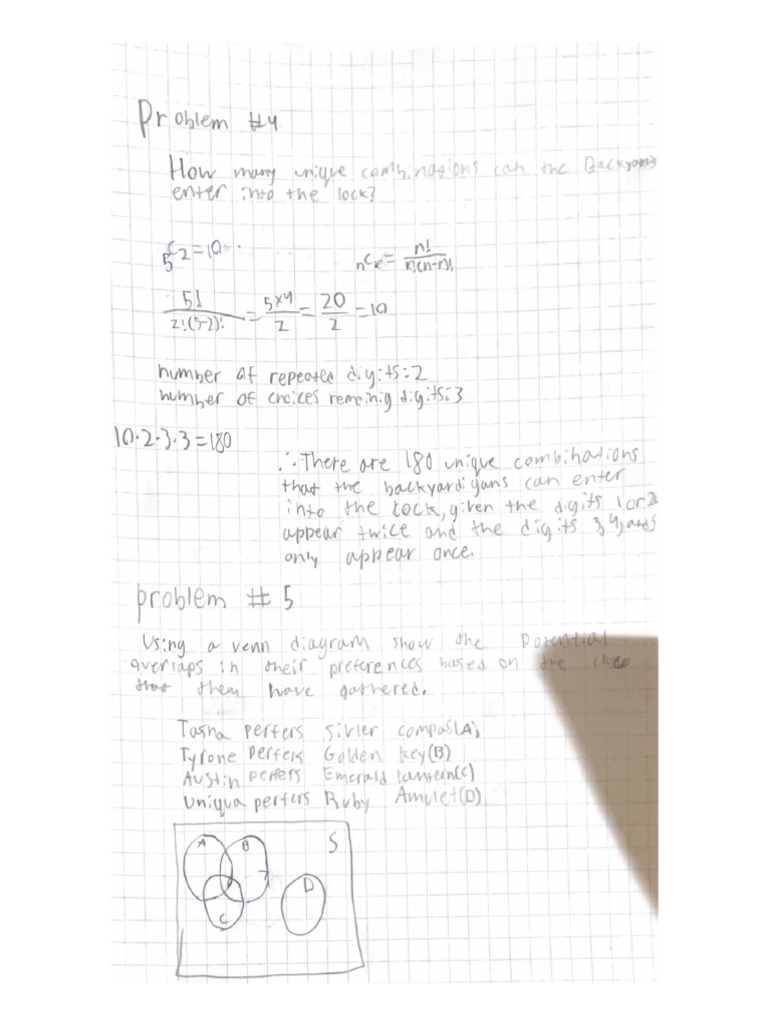 Problem #4
How many unique combinations can the Backyard
enter into the lock?
5C2=10
nCr = n!/r!(n-r)!
5!/2!(5-2)! = 5x4/2 = 20/2 = 10
number of repeated digits=2
number of choices remainig digits=3
10·2·3·3=180
∴ There are 180 unique combinations
that the backyardigans can enter
into the lock, given the digits 1 or 2
appear twice and the digits 3,4, and 5
only appear once.
problem # 5
Using a venn diagram show the Potential
overlaps in their preferences based on the clues
that them have gathered.
Tasha perfers Sivler compas(A)
Tyrone perfers Golden key(B)
Austin perfers Emerald lantern(C)
Uniqua perfers Ruby Amulet(D)
A B S
D
C